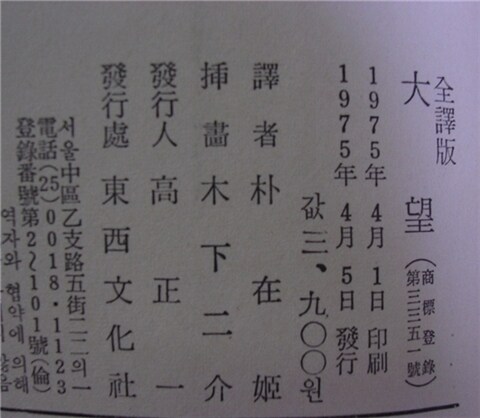 全譯版
大望 (商標登錄 第三三五一號)
1975年 4月 1日 印刷
1975年 4月 5日 發行
값 三、九〇〇원
譯者 朴在姬
揷畵 木下二介
發行人 高正一
發行處 東西文化社
서울中區乙支路五街二二의一
電話(25)0018·1123
登錄番號第2~101號(倫)
역자와 협약에 의해